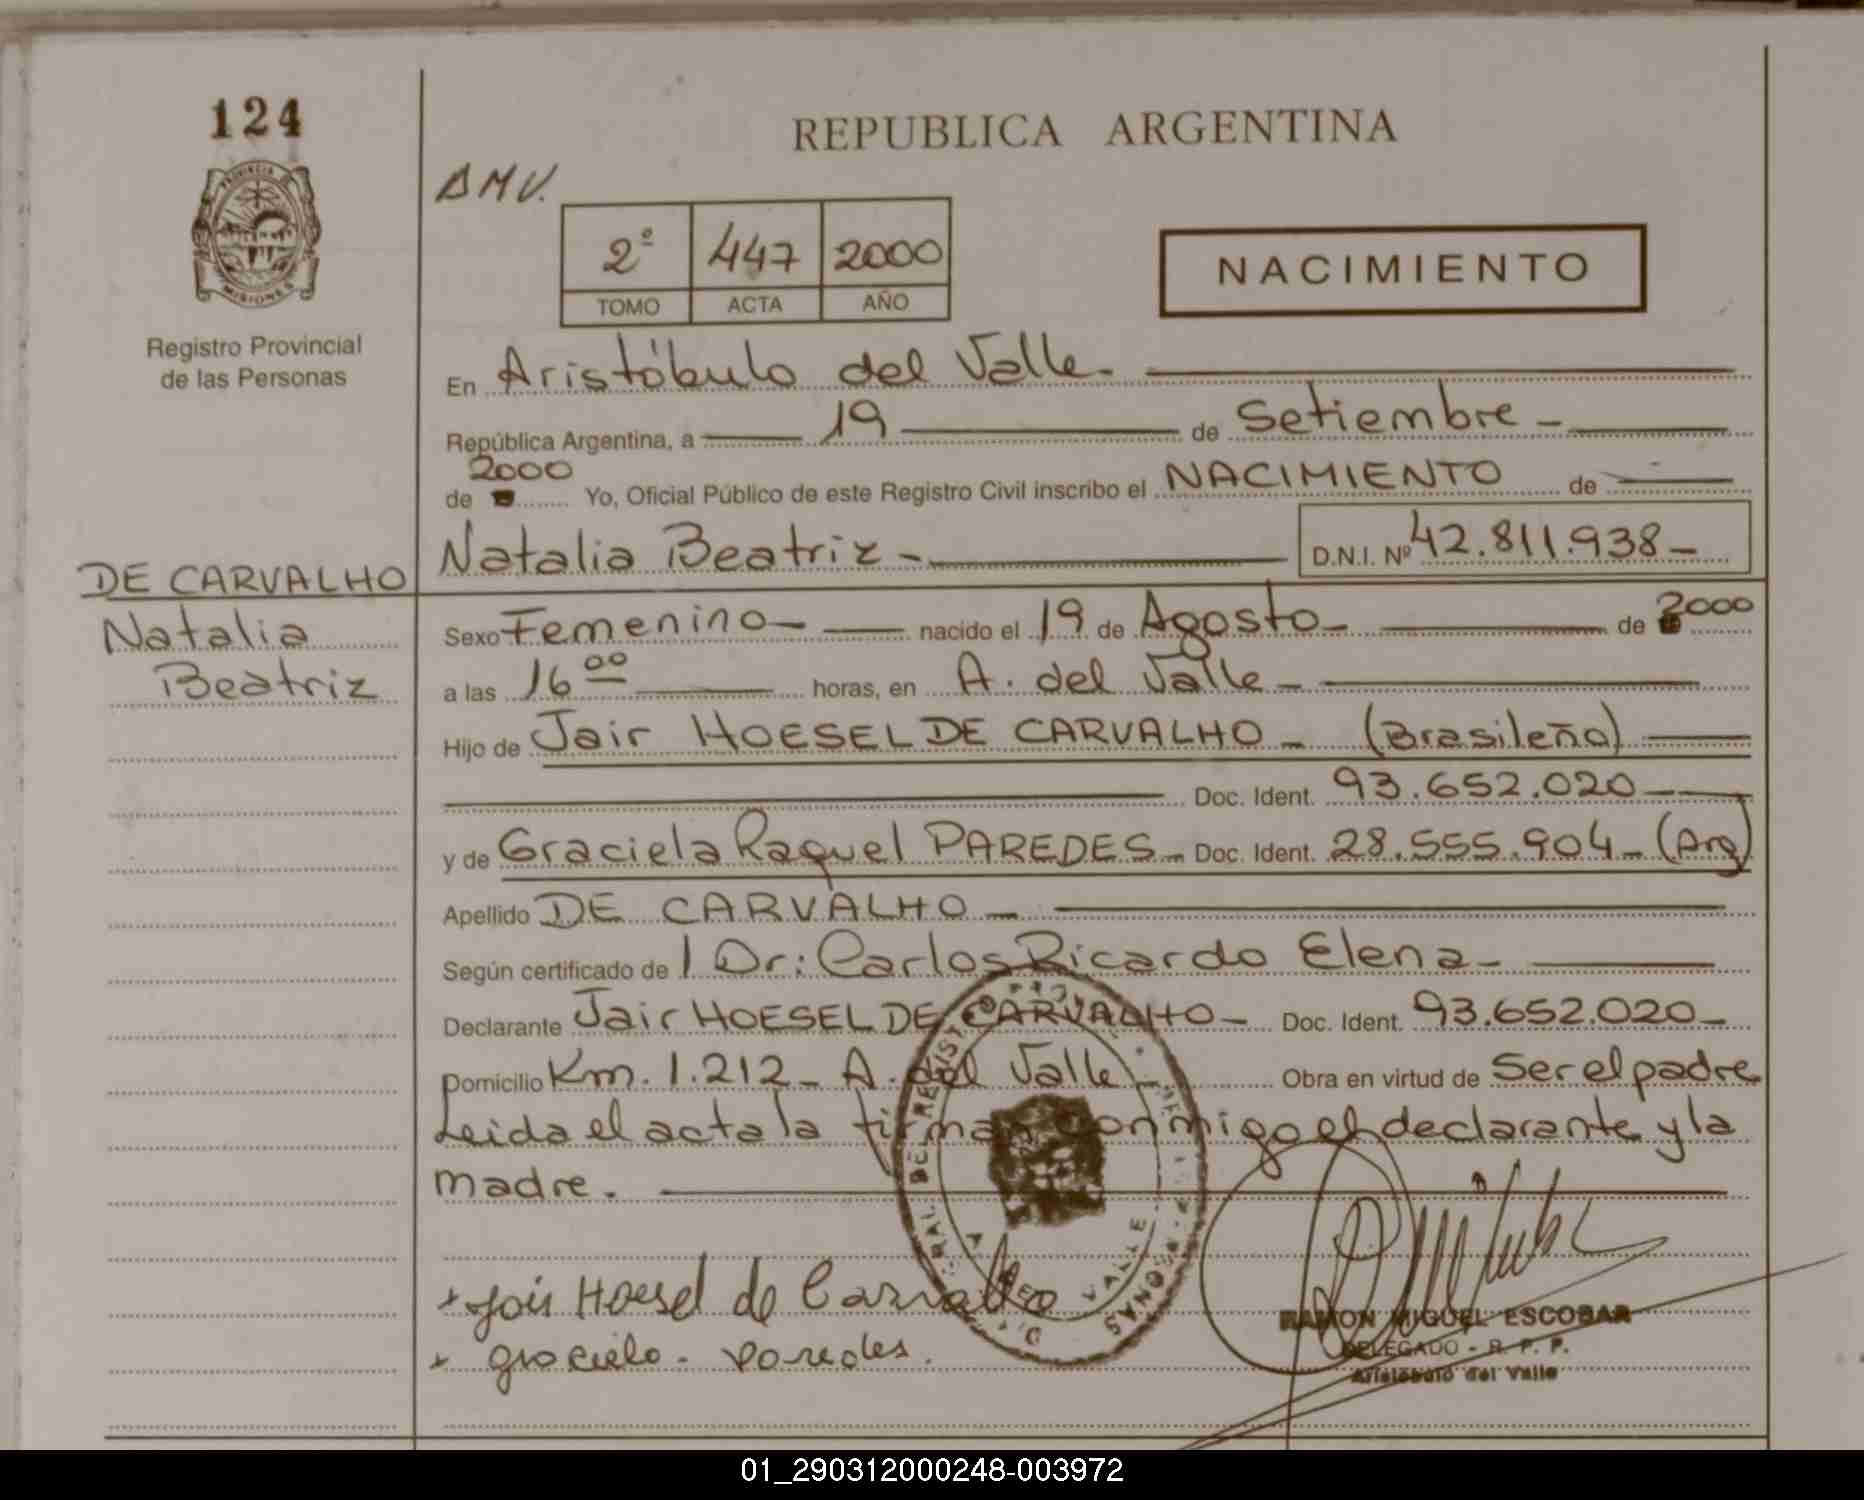 124
REPUBLICA ARGENTINA
PROVINCIA DE
MISIONES
Registro Provincial
de las Personas
2º 447 2000
TOMO ACTA AÑO
NACIMIENTO
En Aristóbulo del Valle.
República Argentina, a 19 de Setiembre
de 2000 Yo, Oficial Público de este Registro Civil inscribo el NACIMIENTO de
Natalia Beatriz D.N.I. Nº 42.811.938
DE CARVALHO
Natalia
Beatriz
Sexo Femenino nacido el 19 de Agosto de 2000
a las 16 00 horas, en A. del Valle
Hijo de Jair HOESEL DE CARVALHO (Brasileño)
Doc. Ident. 93.652.020
y de Graciela Raquel PAREDES Doc. Ident. 28.555.904 (Arg)
Apellido DE CARVALHO
Según certificado de l Dr: Carlos Ricardo Elena
Declarante Jair HOESEL DE CARVALHO Doc. Ident. 93.652.020
Domicilio Km. 1.212 A. del Valle Obra en virtud de Ser el padre
Leida el acta la firman conmigo el declarante y la
madre.
Hoesel de Carvalho
Paredes.
RAMON MIGUEL ESCOBAR
DELEGADO - R. P. P.
Aristóbulo del Valle
01_290312000248-003972